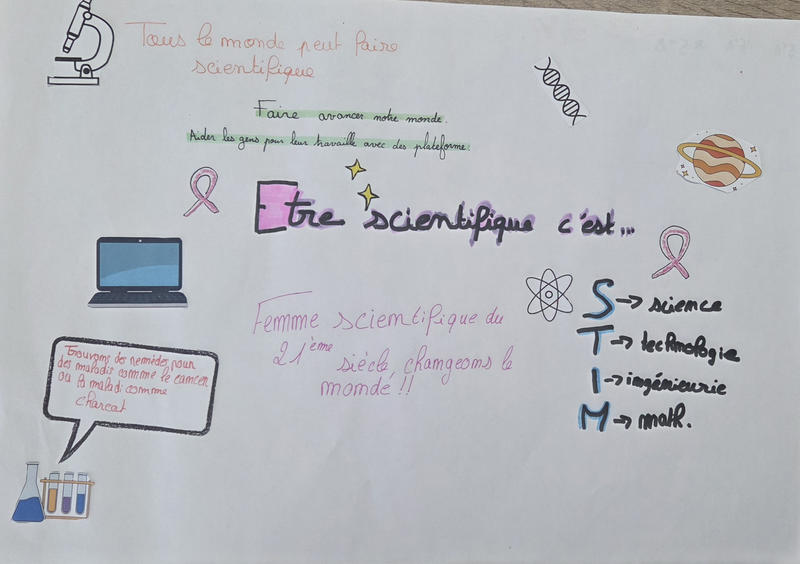 Tous le monde peut faire
scientifique
Faire avancer notre monde.
Aider les gens pour leur travaille avec des plateforme.
Etre scientifique c'est...
Femme scientifique du
21ème siècle, changeons le
monde !!
S → science
T → technologie
I → ingénieurie
M → math.
Trouvons des remèdes pour
des maladis comme le cancer
ou la maladi comme
charcot